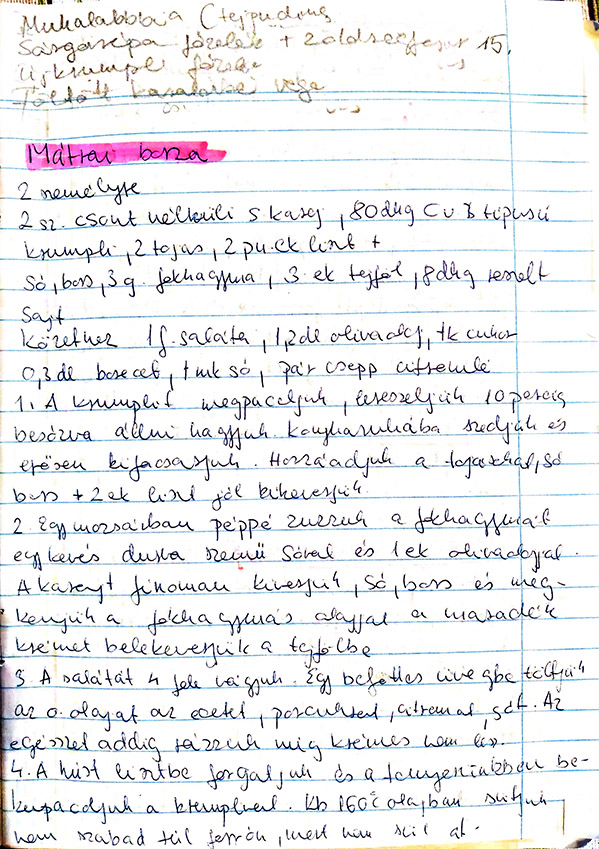 Muhalabbia (tejpuding
Sárgarépa főzelék + zöldségfasírt 15,
Újkrumpli főzelék
Töltött karalábé vége
Mátrai borzas
2 személyre
2 sz. csont nélküli s karaj, 80dkg C v B típusú
krumpli, 2 tojás, 2 pu. ek liszt +
Só, bors, 3 g. fokhagyma, 3 ek tejföl, 8dkg reszelt
Sajt
Körethez 1 f. saláta, 1,2 de olivaolaj, 1k cukor
0,3 de borecet, 1 mk só, pár csepp citromlé
1. A krumplit megpucoljuk, lereszeljük 10 percig
besózva állni hagyjuk. Konyharuhába szedjük és
erősen kifacsarjuk. Hozzáadjuk a tojásokat, só
bors + 2 ek liszt jól kikeverjük.
2. Egy mozsárban péppé zúzzuk a fokhagymát
egy kevés durva szemű sóval és 1 ek olivaolajjal.
A karajt finoman kiverjük, Só, bors és meg-
kenjük a fokhagymás olajjal a maradék
krémet belekeverjük a tejfölbe
3. A salátát 4 fele vágjuk. Egy befőttes üvegbe töltjük
az o. olajat az ecetet, porcukrot, citromot, sót. Az
egészet addig rázzuk míg krémes nem lesz.
4. A húst lisztbe forgatjuk és a tenyerünkben be-
kupacoljuk a krumplival. Kb 160°c olajban sütjük
nem szabad túl forrón, mert nem sül át.